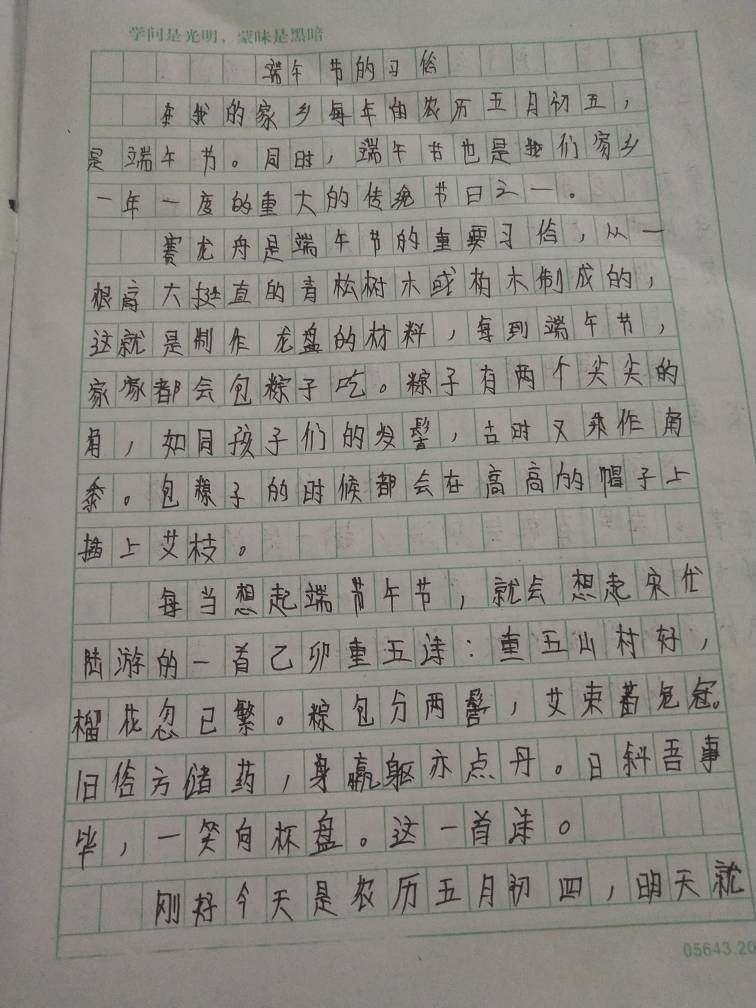 学问是光明，蒙昧是黑暗
端午节的习俗
在我的家乡每年由农历五月初五，
是端午节。同时，端午节也是我们家乡
一年一度的重大的传统节日之一。
赛龙舟是端午节的重要习俗，从一
根高大挺直的青松树木或柏木制成的，
这就是制作龙盘的材料，每到端午节，
家家都会包粽子吃。粽子有两个尖尖的
角，如同孩子们的发髻，古时又称作角
黍。包粽子的时候都会在高高的帽子上
插上艾枝。
每当想起端节午节，就会想起宋代
陆游的一首乙卯重五诗：重五山村好，
榴花忽已繁。粽包分两髻，艾束著危冠。
旧俗方储药，身羸躯亦点丹。日斜吾事
毕，一笑向杯盘。这一首诗。
刚好今天是农历五月初四，明天就
05643.20